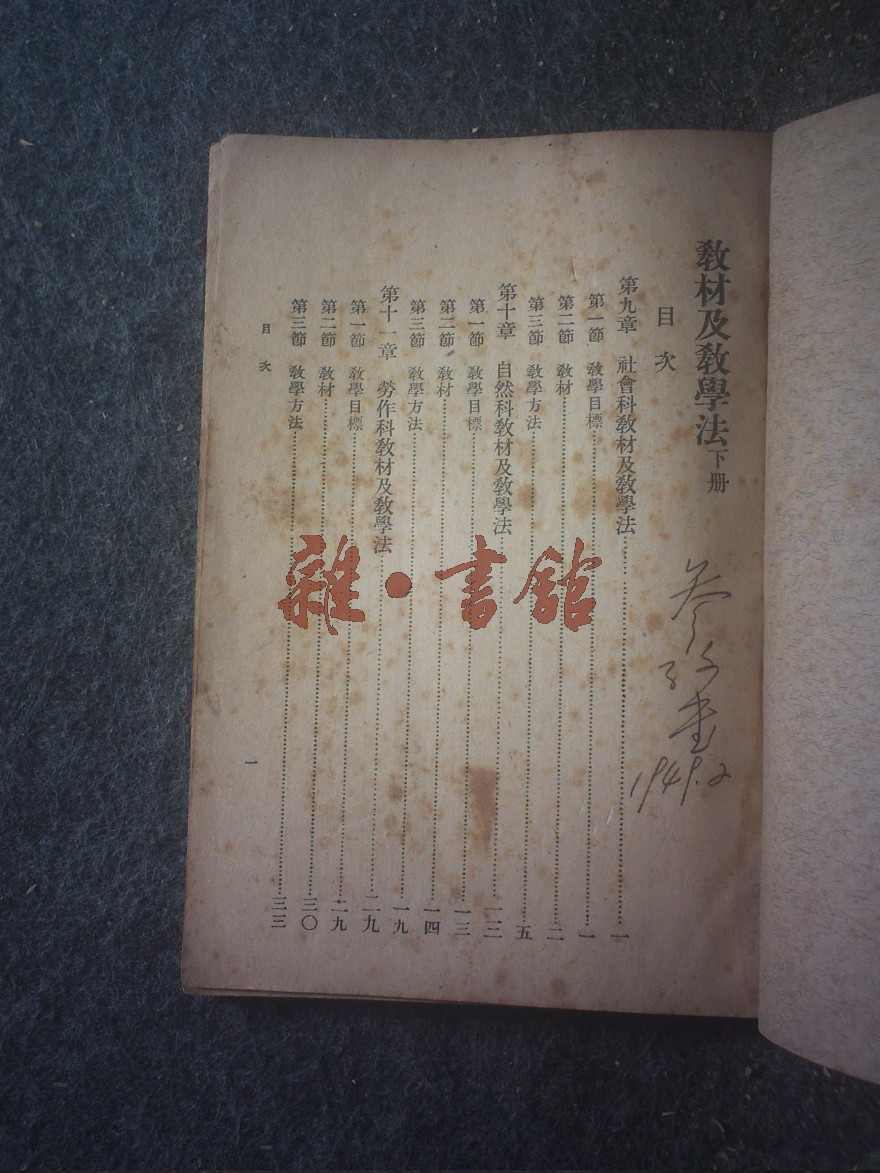 敎材及敎學法下册
參攷書
1949.2
目次
第九章 社會科敎材及敎學法……一
第一節 敎學目標……一
第二節 敎材……二
第三節 敎學方法……五
第十章 自然科敎材及敎學法……一三
第一節 敎學目標……一三
第二節 敎材……一四
第三節 敎學方法……一九
第十一章 勞作科敎材及敎學法……二九
第一節 敎學目標……二九
第二節 敎材……三〇
第三節 敎學方法……三三
目次
一
雜·書館